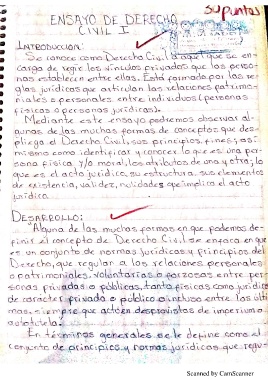 50 puntos
ENSAYO DE DERECHO
CIVIL I
INTRODUCCION:
Se conoce como Derecho Civil a aquel que se en-
carga de regir los vínculos privados que las perso-
nas establecen entre ellas. Está formado por las re-
glas jurídicas que articulan las relaciones patrimo-
niales o personales entre individuos (personas
físicas o personas jurídicas).
Mediante este ensayo podremos observar al-
gunas de las muchas formas de conceptos que des-
pliega el Derecho Civil, sus principios, fines; así
mismo como identificar y conocer lo que es una per-
sona física y/o moral, los atributos de una y otra; lo
que es el acto jurídico, su estructura, sus elementos
de existencia, validez, nulidades que implica el acto
jurídico.
DESARROLLO:
Alguna de las muchas formas en que podemos de-
finir el concepto de Derecho Civil se enfoca en que
es un conjunto de normas jurídicas y principios del
Derecho, que regulan a las relaciones personales
o patrimoniales, voluntarias o forzosas entre per-
sonas privadas o públicas, tanto físicas como jurídicas
de carácter privado o público o incluso entre las últi-
mas, siempre que actúen desprovistas de imperium o
autotutela.
En términos generales se le define como el
conjunto de principios y normas jurídicas que regu-
Scanned by CamScanner